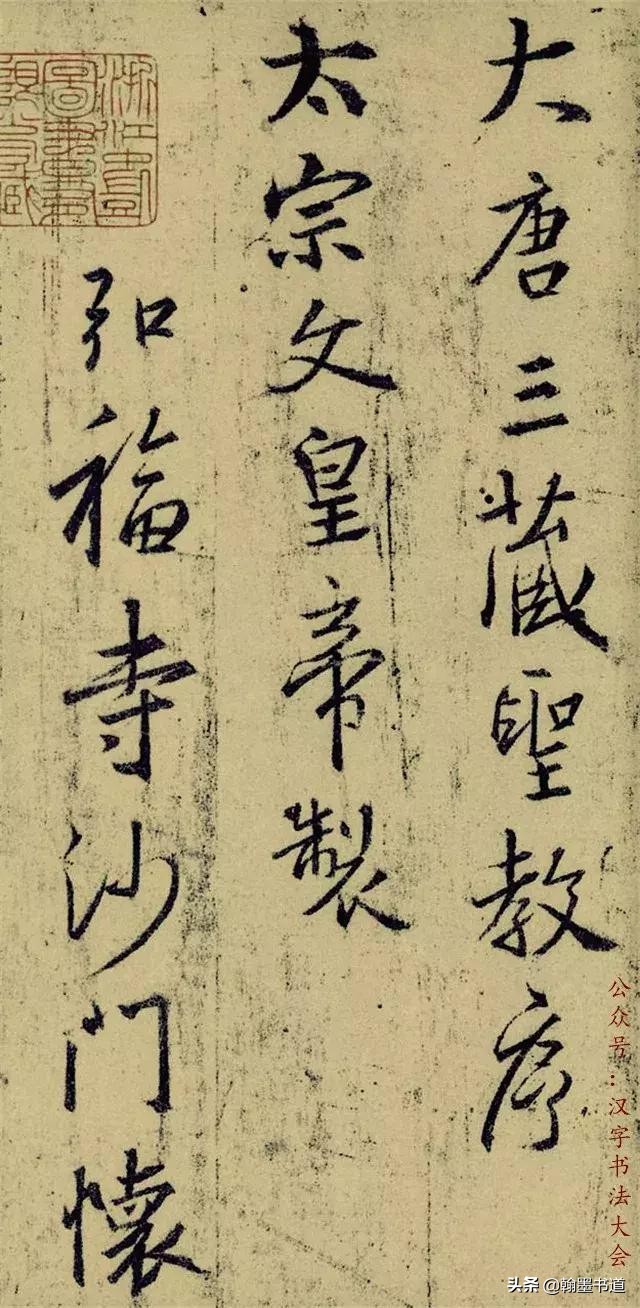 大唐三藏聖教序
太宗文皇帝製
弘福寺沙門懷
公众号:汉字书法大会
头条 @翰墨书道